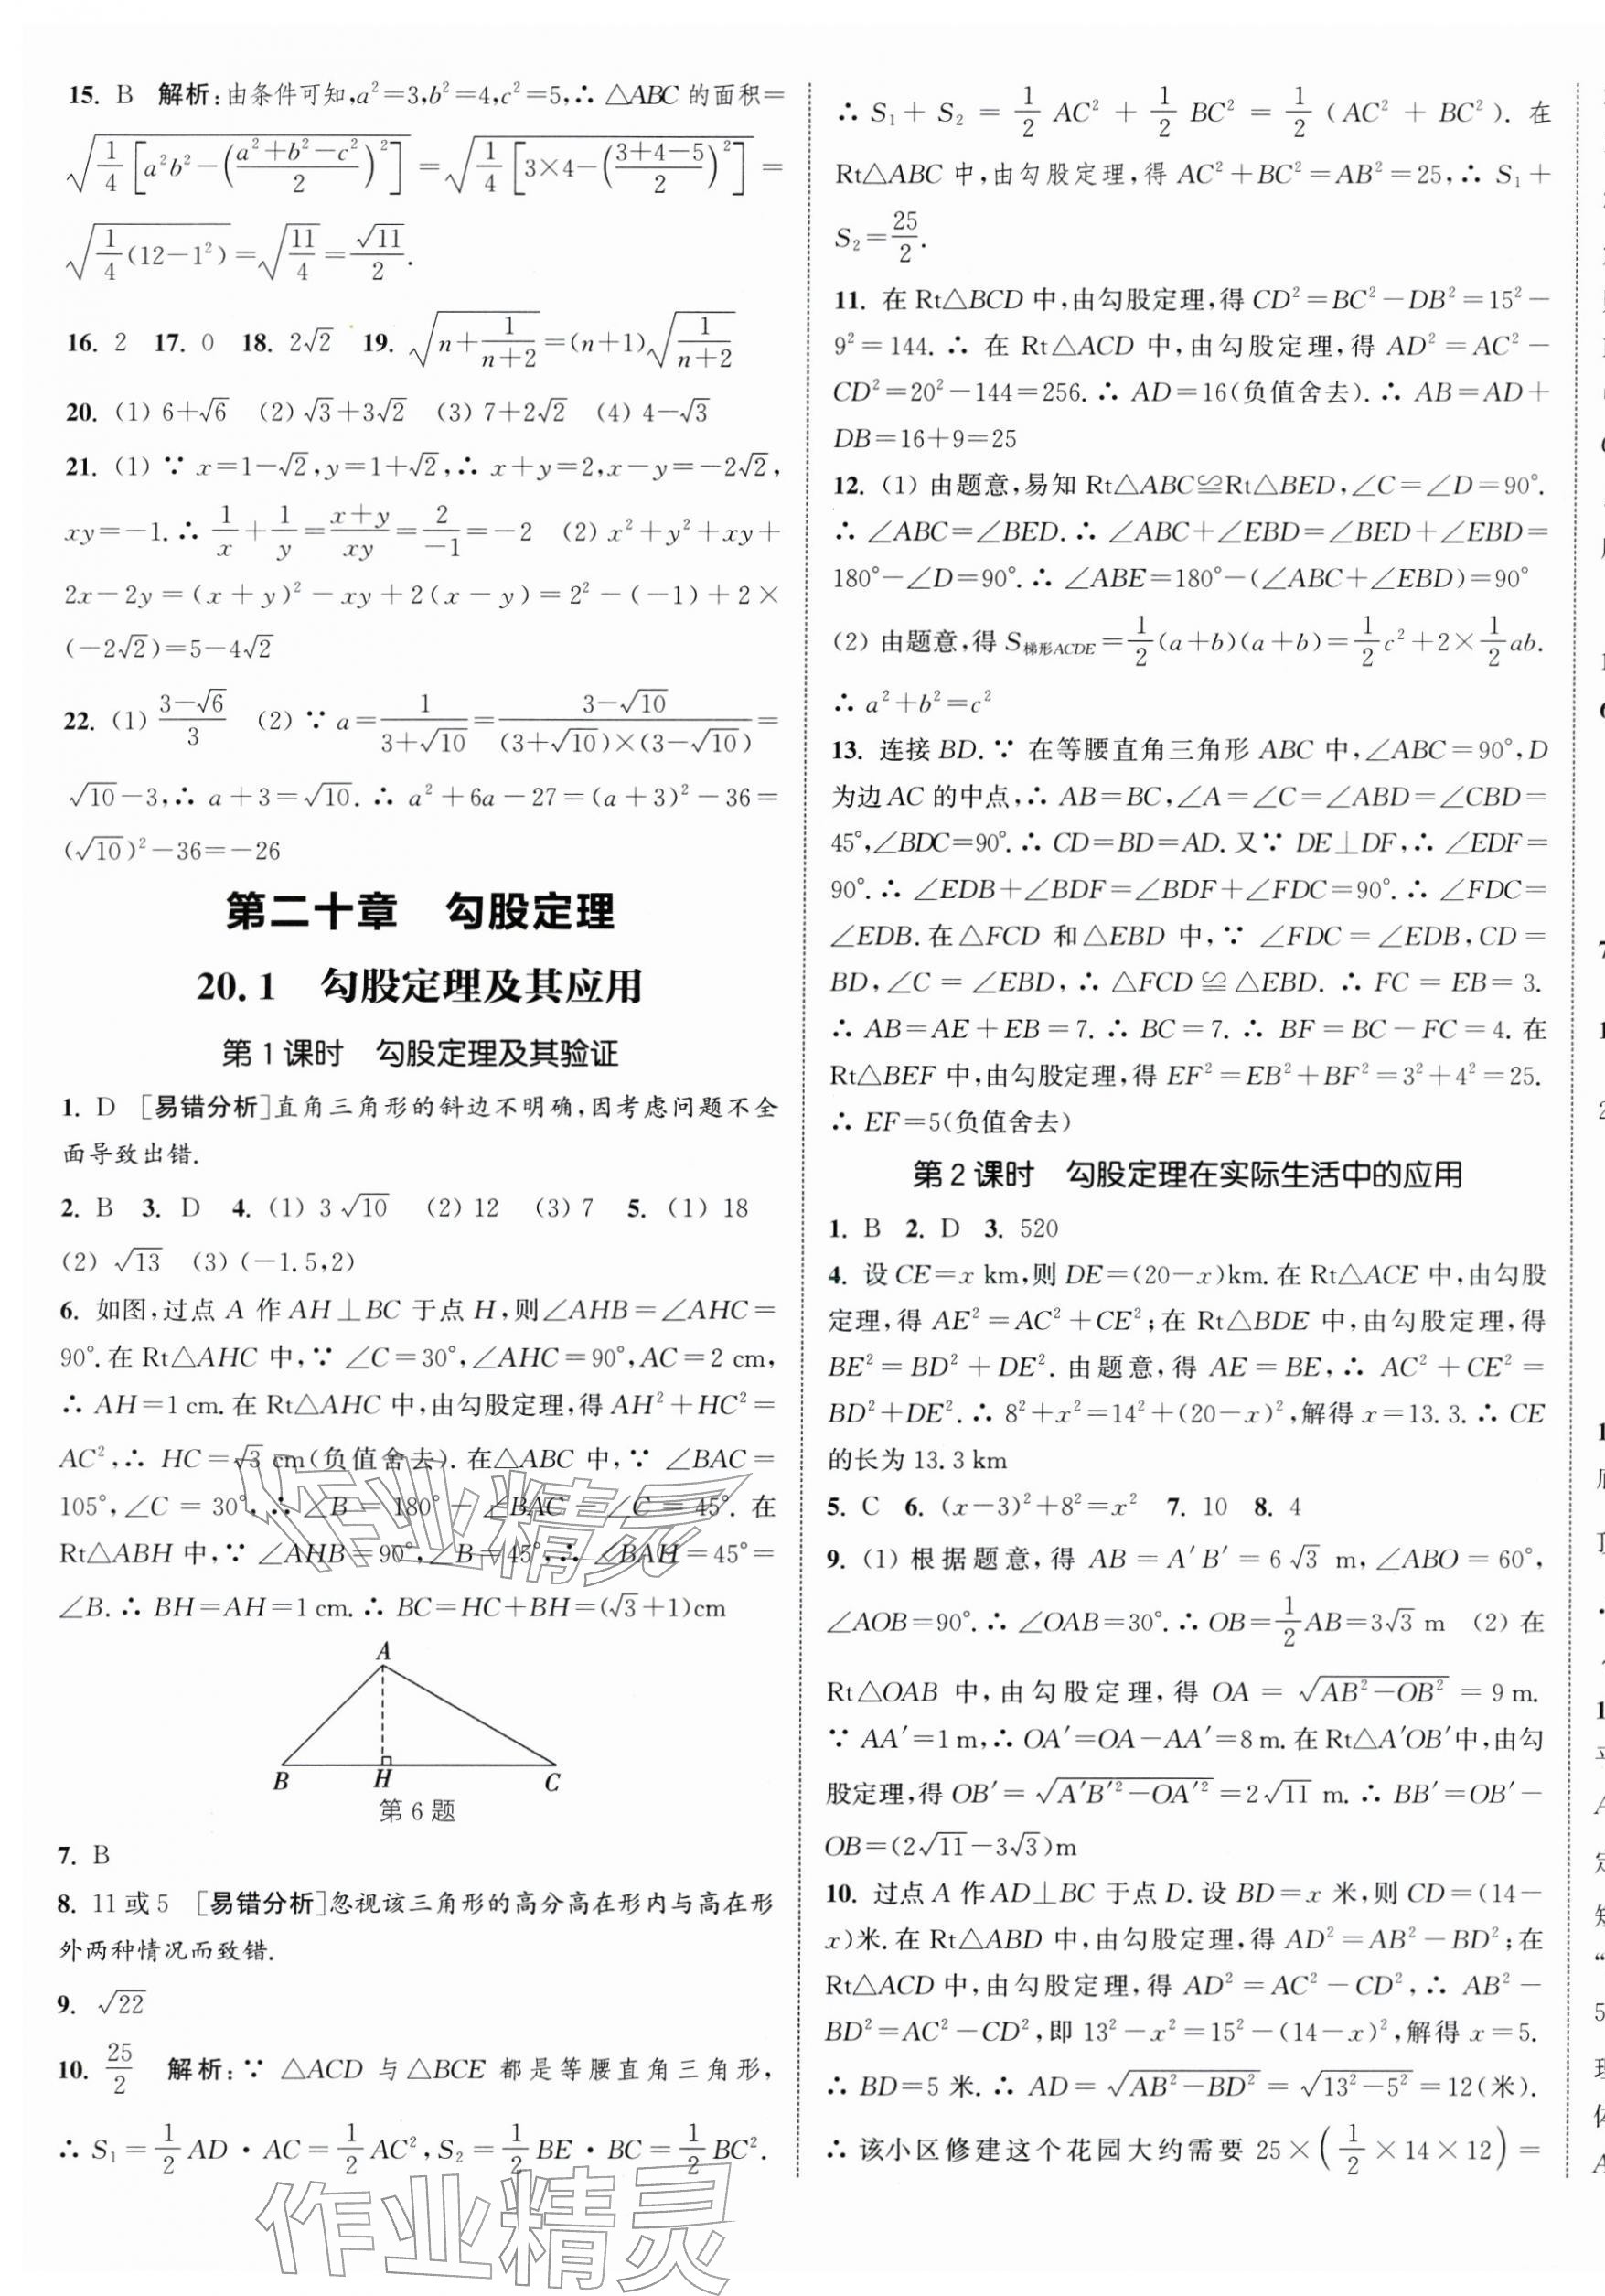 15. B 解析:由条件可知,a²=3,b²=4,c²=5,∴ △ABC 的面积=
√(1/4[a²b²-((a²+b²-c²)/2)²]) = √(1/4[3×4-((3+4-5)/2)²]) =
√(1/4(12-1²)) = √(11/4) = √11/2.
16. 2 17. 0 18. 2√2 19. √(n+1/(n+2)) =(n+1)√(1/(n+2))
20. (1) 6+√6 (2) √3+3√2 (3) 7+2√2 (4) 4-√3
21. (1) ∵ x=1-√2,y=1+√2,∴ x+y=2,x-y=-2√2,
xy=-1.∴ 1/x+1/y=(x+y)/xy=2/-1=-2 (2) x²+y²+xy+
2x-2y=(x+y)²-xy+2(x-y)=2²-(-1)+2×
(-2√2)=5-4√2
22. (1) (3-√6)/3 (2) ∵ a=1/(3+√10)=(3-√10)/((3+√10)×(3-√10))=
√10-3,∴ a+3=√10.∴ a²+6a-27=(a+3)²-36=
(√10)²-36=-26
第二十章 勾股定理
20.1 勾股定理及其应用
第 1 课时 勾股定理及其验证
1. D [易错分析]直角三角形的斜边不明确,因考虑问题不全
面导致出错.
2. B 3. D 4. (1) 3√10 (2) 12 (3) 7 5. (1) 18
(2) √13 (3) (-1.5,2)
6. 如图,过点 A 作 AH⊥BC 于点 H,则∠AHB=∠AHC=
90°.在 Rt△AHC 中,∵ ∠C=30°,∠AHC=90°,AC=2 cm,
∴ AH=1 cm.在 Rt△AHC 中,由勾股定理,得 AH²+HC²=
AC²,∴ HC=√3 cm(负值舍去).在△ABC 中,∵ ∠BAC=
105°,∠C=30°,∴ ∠B=180°-∠BAC-∠C=45°.在
Rt△ABH 中,∵ ∠AHB=90°,∠B=45°,∴ ∠BAH=45°=
∠B.∴ BH=AH=1 cm.∴ BC=HC+BH=(√3+1)cm
A
B H C
第 6 题
7. B
8. 11 或 5 [易错分析]忽视该三角形的高分高在形内与高在形
外两种情况而致错.
9. √22
10. 25/2 解析:∵ △ACD 与△BCE 都是等腰直角三角形,
∴ S₁=1/2 AD·AC=1/2 AC²,S₂=1/2 BE·BC=1/2 BC².
∴ S₁+S₂=1/2 AC²+1/2 BC²=1/2(AC²+BC²).在
Rt△ABC 中,由勾股定理,得 AC²+BC²=AB²=25,∴ S₁+
S₂=25/2.
11. 在 Rt△BCD 中,由勾股定理,得 CD²=BC²-DB²=15²-
9²=144.∴ 在 Rt△ACD 中,由勾股定理,得 AD²=AC²-
CD²=20²-144=256.∴ AD=16(负值舍去).∴ AB=AD+
DB=16+9=25
12. (1) 由题意,易知 Rt△ABC≌Rt△BED,∠C=∠D=90°.
∴ ∠ABC=∠BED.∴ ∠ABC+∠EBD=∠BED+∠EBD=
180°-∠D=90°.∴ ∠ABE=180°-(∠ABC+∠EBD)=90°
(2) 由题意,得 S梯形ACDE=1/2(a+b)(a+b)=1/2c²+2×1/2ab.
∴ a²+b²=c²
13. 连接 BD.∵ 在等腰直角三角形 ABC 中,∠ABC=90°,D
为边 AC 的中点,∴ AB=BC,∠A=∠C=∠ABD=∠CBD=
45°,∠BDC=90°.∴ CD=BD=AD.又∵ DE⊥DF,∴ ∠EDF=
90°.∴ ∠EDB+∠BDF=∠BDF+∠FDC=90°.∴ ∠FDC=
∠EDB.在△FCD 和△EBD 中,∵ ∠FDC=∠EDB,CD=
BD,∠C=∠EBD,∴ △FCD≌△EBD.∴ FC=EB=3.
∴ AB=AE+EB=7.∴ BC=7.∴ BF=BC-FC=4.在
Rt△BEF 中,由勾股定理,得 EF²=EB²+BF²=3²+4²=25.
∴ EF=5(负值舍去)
第 2 课时 勾股定理在实际生活中的应用
1. B 2. D 3. 520
4. 设 CE=x km,则 DE=(20-x)km.在 Rt△ACE 中,由勾股
定理,得 AE²=AC²+CE²;在 Rt△BDE 中,由勾股定理,得
BE²=BD²+DE².由题意,得 AE=BE,∴ AC²+CE²=
BD²+DE².∴ 8²+x²=14²+(20-x)²,解得 x=13.3.∴ CE
的长为 13.3 km
5. C 6. (x-3)²+8²=x² 7. 10 8. 4
9. (1) 根据题意,得 AB=A′B′=6√3 m,∠ABO=60°,
∠AOB=90°.∴ ∠OAB=30°.∴ OB=1/2AB=3√3 m (2) 在
Rt△OAB 中,由勾股定理,得 OA=√(AB²-OB²)=9 m.
∵ AA′=1 m,∴ OA′=OA-AA′=8 m.在 Rt△A′OB′中,由勾
股定理,得 OB′=√(A′B′²-OA′²)=2√11 m.∴ BB′=OB′-
OB=(2√11-3√3)m
10. 过点 A 作 AD⊥BC 于点 D.设 BD=x 米,则 CD=(14-
x)米.在 Rt△ABD 中,由勾股定理,得 AD²=AB²-BD²;在
Rt△ACD 中,由勾股定理,得 AD²=AC²-CD²,∴ AB²-
BD²=AC²-CD²,即 13²-x²=15²-(14-x)²,解得 x=5.
∴ BD=5 米.∴ AD=√(AB²-BD²)=√(13²-5²)=12(米).
∴ 该小区修建这个花园大约需要 25×(1/2×14×12)=
作业精灵
作业精灵